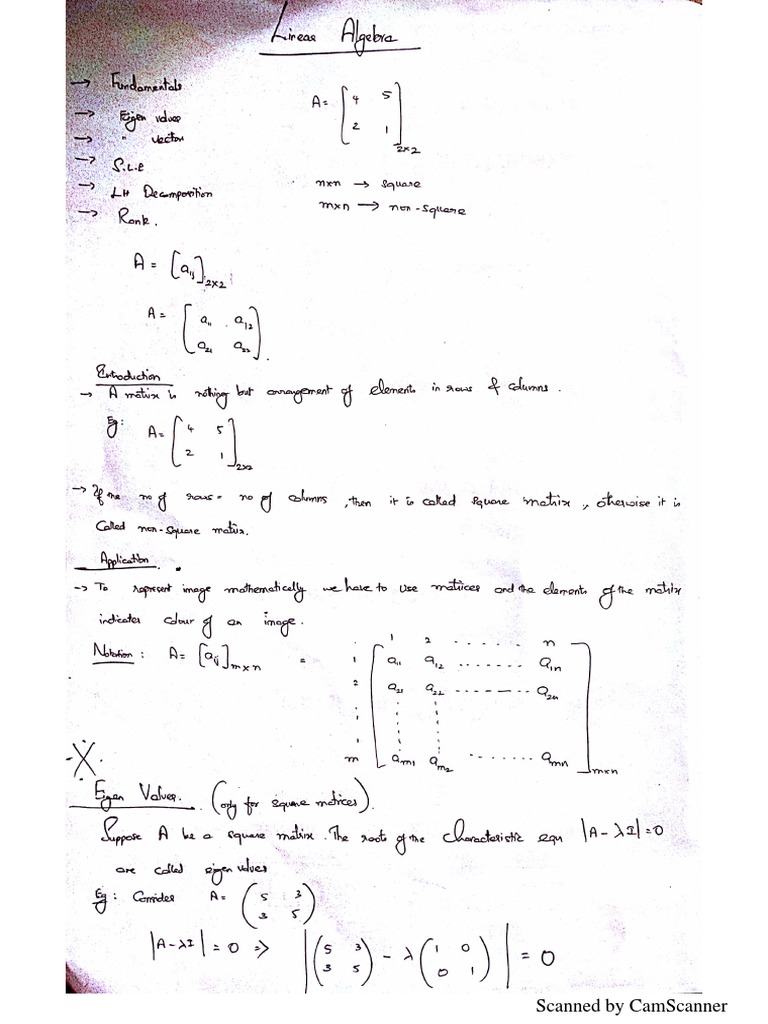 Linear Algebra
→ Fundamentals
→ Eigen values
→ " vector
→ S.L.E
→ LU Decomposition
→ Rank.
A = [4 5
2 1]2×2
n×n → square
m×n → non-square
A = [aij]2×2
A = [a11 a12
a21 a22].
Introduction
→ A matrix is nothing but arrangement of elements in rows & columns.
Eg: A = [4 5
2 1]2×2
→ If the no of rows = no of columns, then it is called square matrix, otherwise it is
called non-square matrix.
Application.
→ To represent image mathematically we have to use matrices and the elements of the matrix
indicates colour of an image.
Notation: A = [aij]m×n =
1 2 ...... n
1 [a11 a12 ....... a1n
2 a21 a22 ------- a2n
m am1 am2 ....... amn]m×n
Eigen Values. (only for square matrices).
Suppose A be a square matrix. The roots of the characteristic equ |A-λI|=0
are called eigen values
Eg: Consider A = (5 3
3 5)
|A-λI| = 0 => |(5 3
3 5) - λ(1 0
0 1)| = 0
Scanned by CamScanner